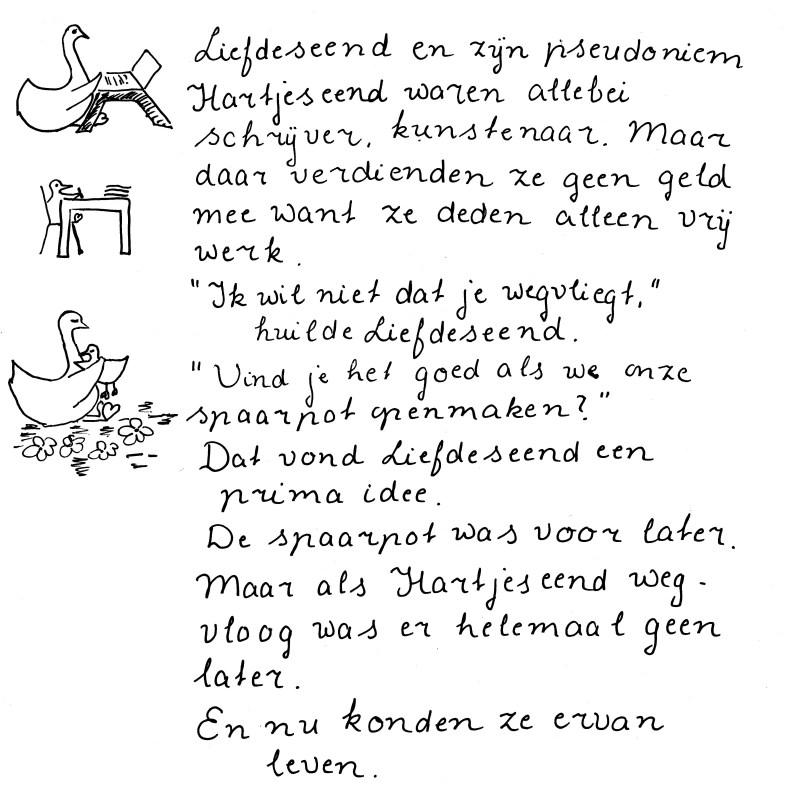 Liefdeseend en zijn pseudoniem
Hartjeseend waren allebei
schrijver, kunstenaar. Maar
daar verdienden ze geen geld
mee want ze deden alleen vrij
werk.
"Ik wil niet dat je wegvliegt,"
huilde Liefdeseend.
"Vind je het goed als we onze
spaarpot openmaken?"
Dat vond Liefdeseend een
prima idee.
De spaarpot was voor later.
Maar als Hartjeseend weg-
vloog was er helemaal geen
later.
En nu konden ze ervan
leven.